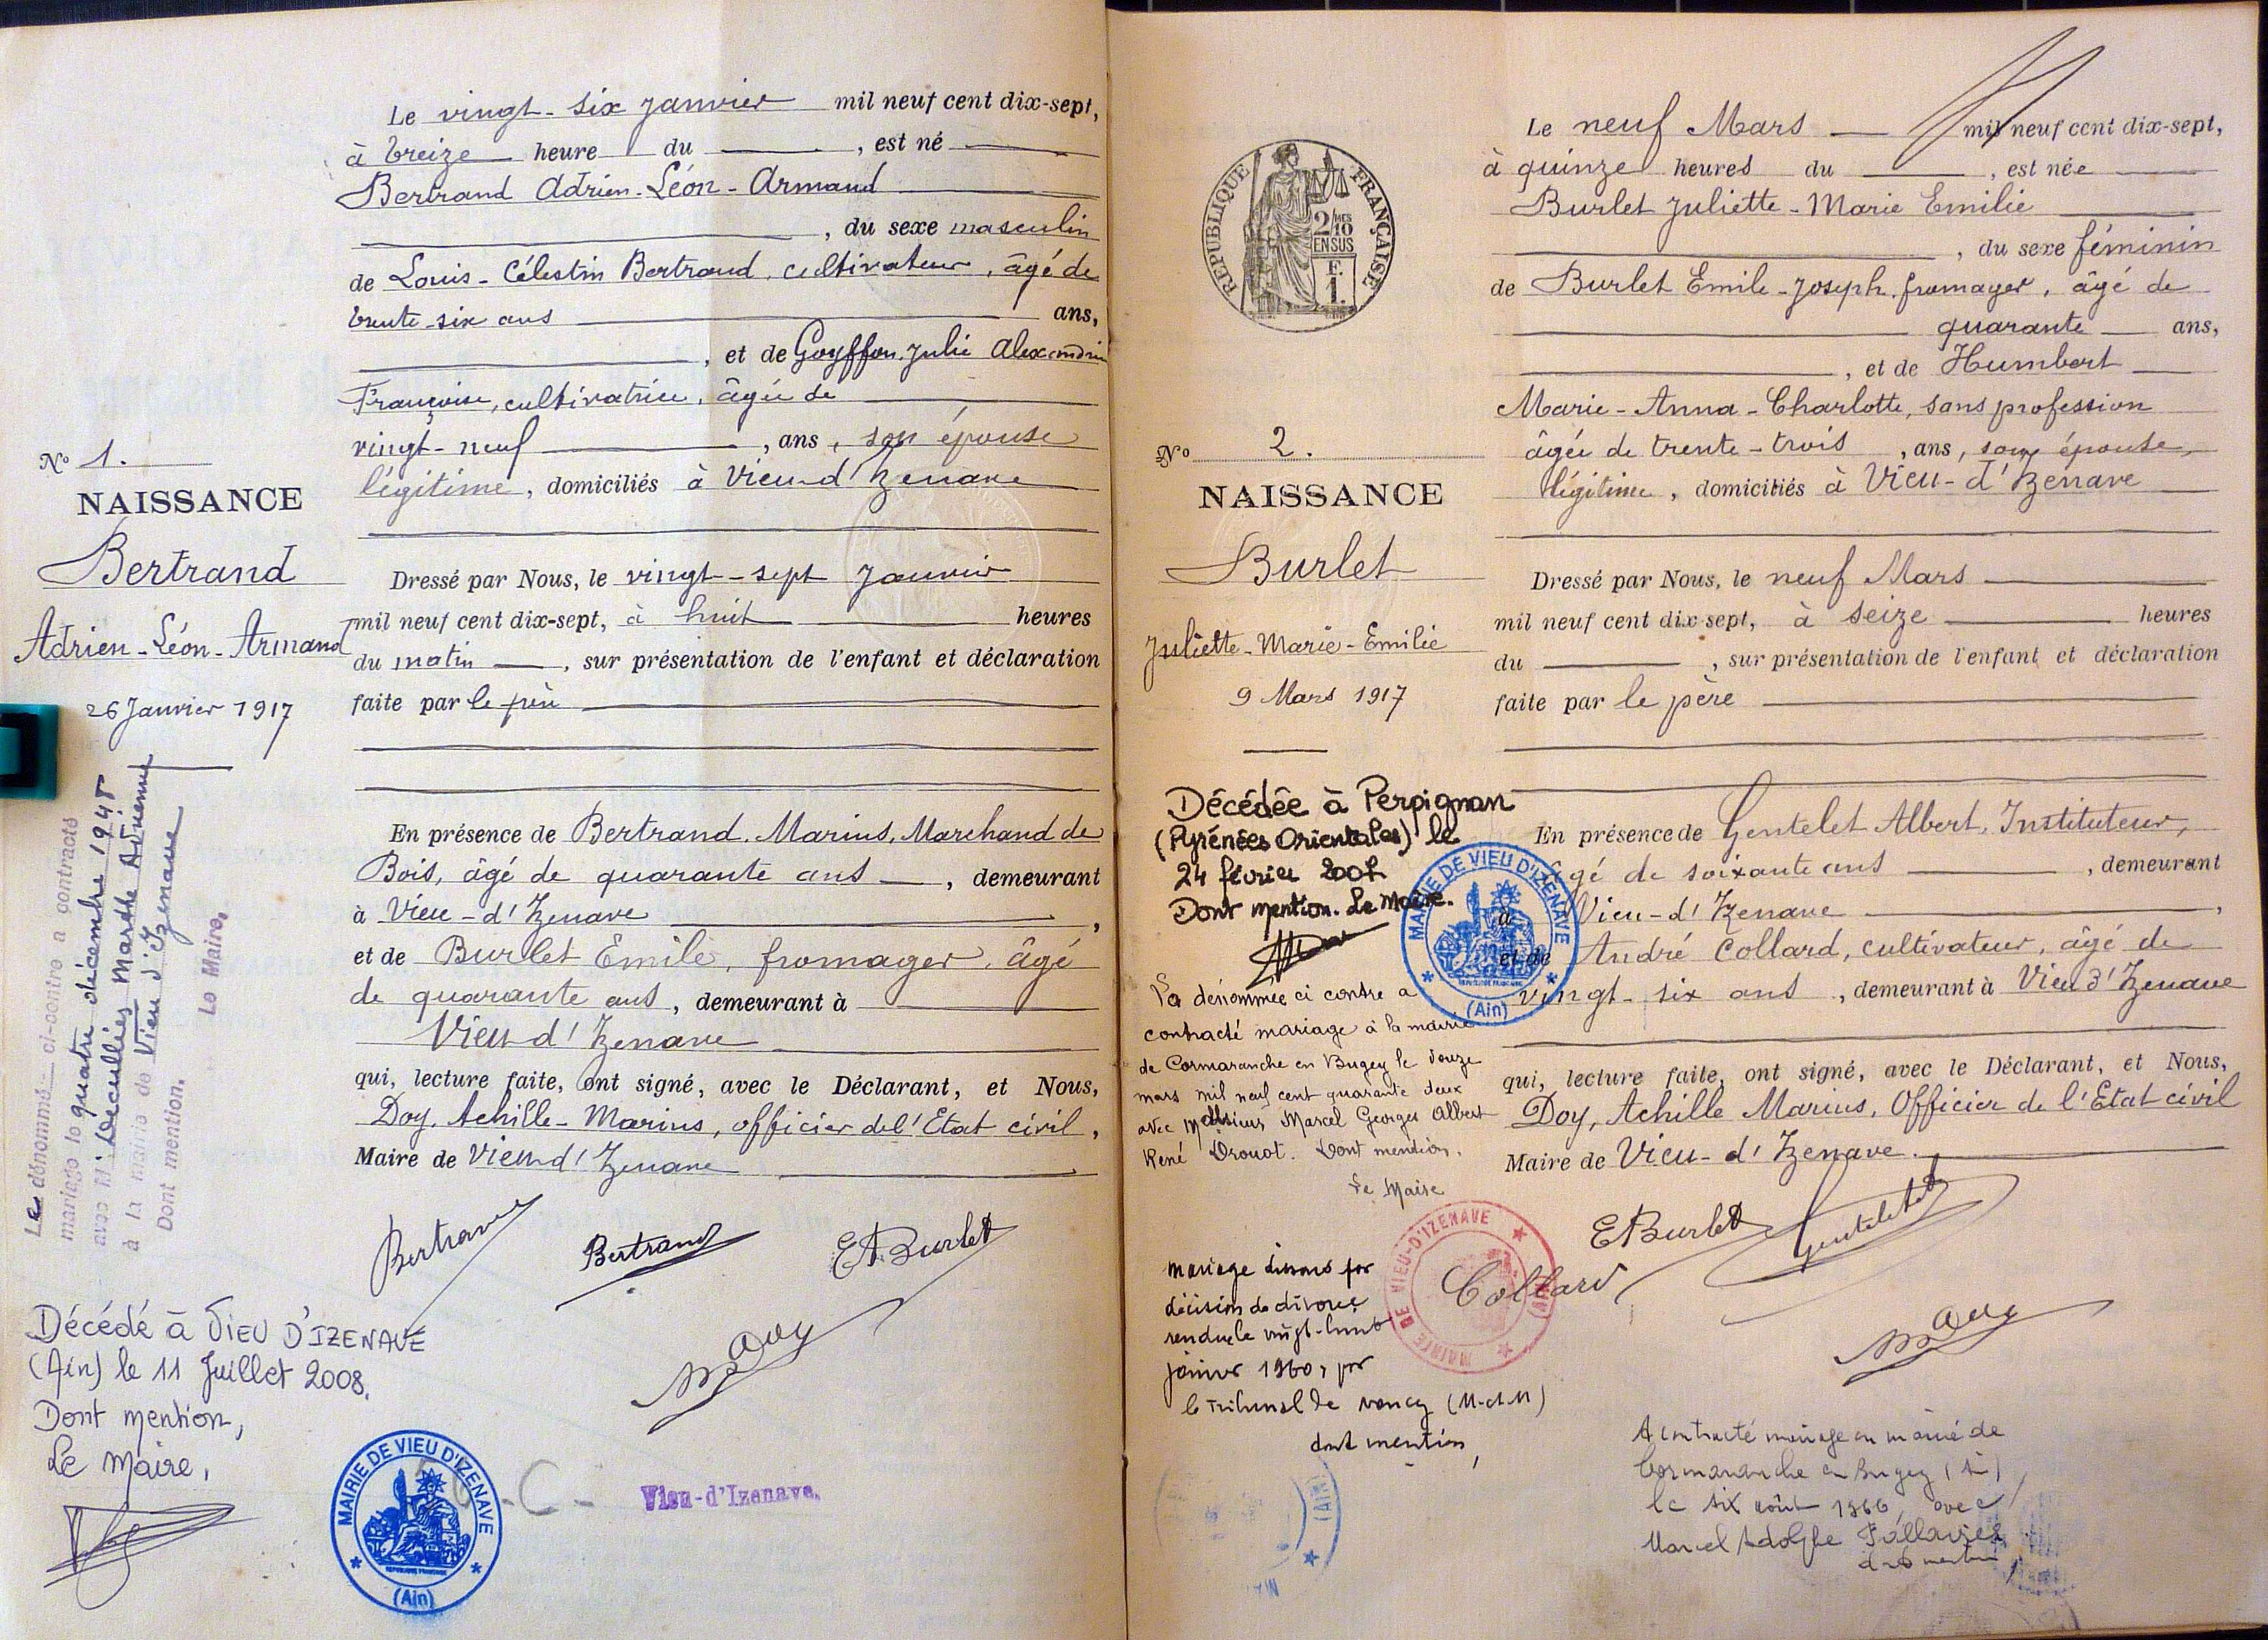 Le vingt-six Janvier mil neuf cent dix-sept,
à treize heure du , est né
Bertrand Adrien-Léon-Armand
, du sexe masculin
de Louis-Célestin Bertrand, cultivateur, âgé de
trente-six ans ans,
, et de Goyffon Julie Alexandrin
Françoise, cultivatrice, âgée de
vingt-neuf , ans, son épouse
légitime, domiciliés à Vieu-d'Izenave
Nº 1.
NAISSANCE
Bertrand
Adrien-Léon-Armand
26 Janvier 1917
Dressé par Nous, le vingt-sept Janvier
mil neuf cent dix-sept, à huit heures
du matin , sur présentation de l'enfant et déclaration
faite par le père
En présence de Bertrand, Marius, Marchand de
Bois, âgé de quarante ans , demeurant
à Vieu-d'Izenave ,
et de Burlet Emile, fromager, âgé
de quarante ans, demeurant à
Vieu d'Izenave
qui, lecture faite, ont signé, avec le Déclarant, et Nous,
Doy, Achille-Marius, officier de l'Etat civil,
Maire de Vieu d'Izenave
Bertrand Bertrand EABurlet
Doy
Le dénommé ci-contre a contracté
mariage le quatre décembre 1945
avec M. Decullies Marthe Adrienne
à la mairie de Vieu d'Izenave
Dont mention.
Le Maire,
Décédé à VIEU D'IZENAVE
(Ain) le 11 Juillet 2008.
Dont mention,
Le Maire,
MAIRIE DE VIEU D'IZENAVE
(Ain)
-C-
Vieu-d'Izenave.
Le neuf Mars mil neuf cent dix-sept,
à quinze heures du , est née
Burlet Juliette-Marie Emilie
, du sexe féminin
de Burlet Emile-Joseph, fromager, âgé de
quarante ans,
, et de Humbert
Marie-Anna-Charlotte, sans profession
âgée de trente-trois , ans, son épouse,
légitime, domiciliés à Vieu-d'Izenave
RÉPUBLIQUE FRANÇAISE
2/10 MES
EN SUS
F.
1.
Nº 2.
NAISSANCE
Burlet
Juliette-Marie-Emilie
9 Mars 1917
Dressé par Nous, le neuf Mars
mil neuf cent dix-sept, à seize heures
du , sur présentation de l'enfant et déclaration
faite par le père
En présence de Gentelet Albert, Instituteur,
âgé de soixante ans , demeurant
à Vieu-d'Izenave ,
et de André Collard, cultivateur, âgé de
vingt-six ans , demeurant à Vieu d'Izenave
qui, lecture faite, ont signé, avec le Déclarant, et Nous,
Doy, Achille Marius, Officier de l'Etat civil
Maire de Vieu-d'Izenave.
EABurlet Gentelet
Collard
Doy
Décédée à Perpignan
(Pyrénées Orientales) le
24 février
Dont mention. Le Maire.
MAIRIE DE VIEU D'IZENAVE
(Ain)
La dénommée ci contre a
contracté mariage à la mairie
de Cormaranche en Bugey le douze
mars mil neuf cent quarante deux
avec Monsieur Marcel Georges Albert
René Drouot. Dont mention.
Le Maire
MAIRIE DE VIEU-D'IZENAVE (AIN)
Mariage dissous par
décision de divorce
rendue le vingt-huit
janvier 1960, par
le Tribunal de Nancy (M-et-M)
dont mention,
A contracté mariage en mairie de
Cormaranche en Bugey (Ain)
le six août 1966, avec
Marcel Adolphe
dont mention